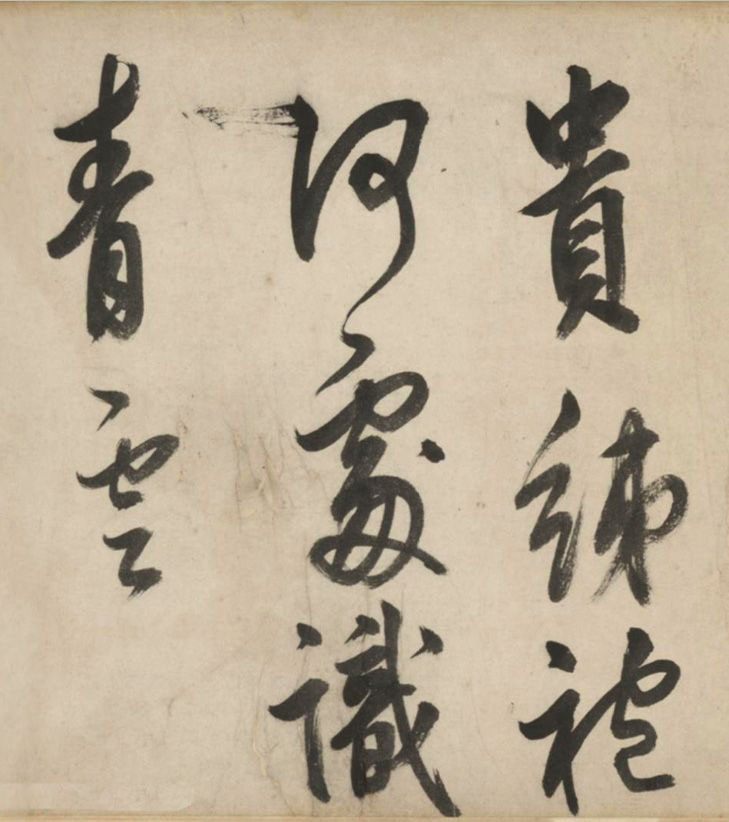 貴綈袍
何處識
青雲